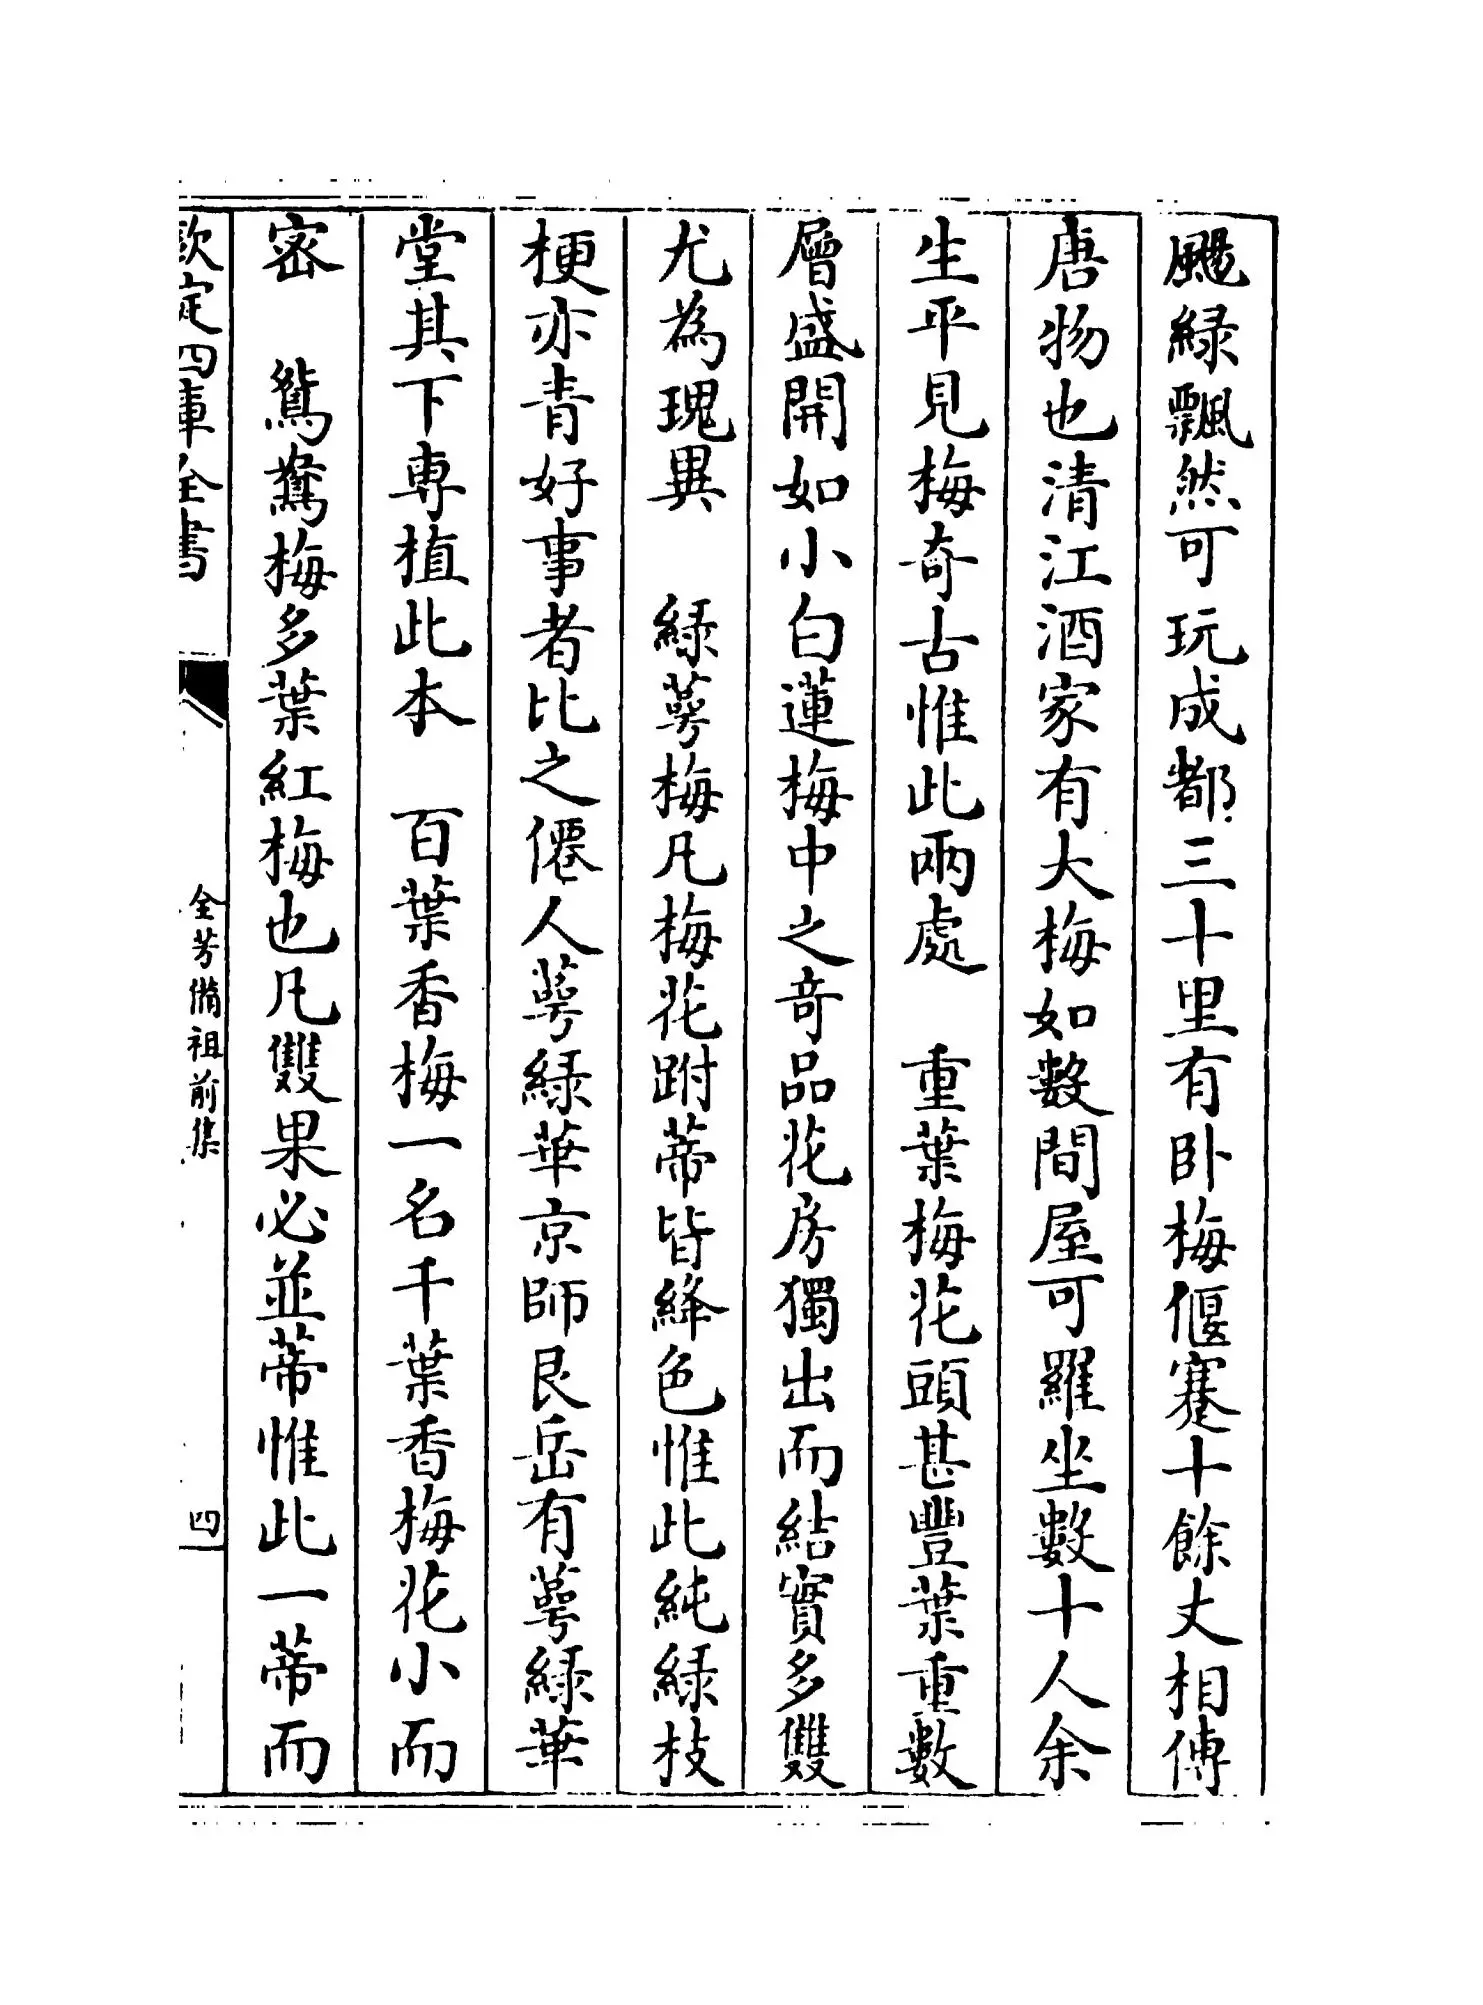 颺綠飄然可玩成都三十里有卧梅偃蹇十餘丈相傳
唐物也清江酒家有大梅如數間屋可羅坐數十人余
生平見梅奇古惟此兩處　重葉梅花頭甚豐葉重數
層盛開如小白蓮梅中之奇品花房獨出而結實多雙
尤為瑰異　綠萼梅凡梅花跗蒂皆絳色惟此純綠枝
梗亦青好事者比之僊人萼綠華京師艮岳有萼綠華
堂其下專植此本　百葉香梅一名千葉香梅花小而
密　鴛鴦梅多葉紅梅也凡雙果必並蒂惟此一蒂而
欽定四庫全書
全芳備祖前集
四